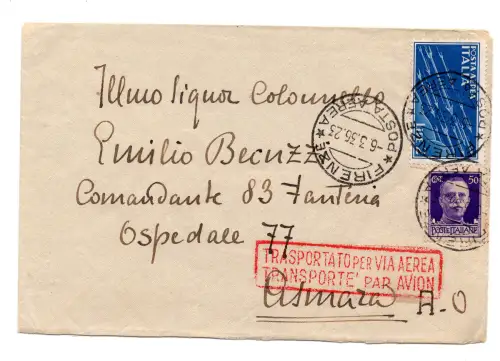 POSTA AEREA
ITALIA
Illmo Signor Colonnello
Emilio Becuzzi
Comandante 83 Fanteria
Ospedale 77
Asmara A.O
FIRENZE
POSTA AEREA
-6.3.36.23
CENT. 50
POSTE ITALIANE
TRASPORTATO PER VIA AEREA
TRANSPORTÉ PAR AVION